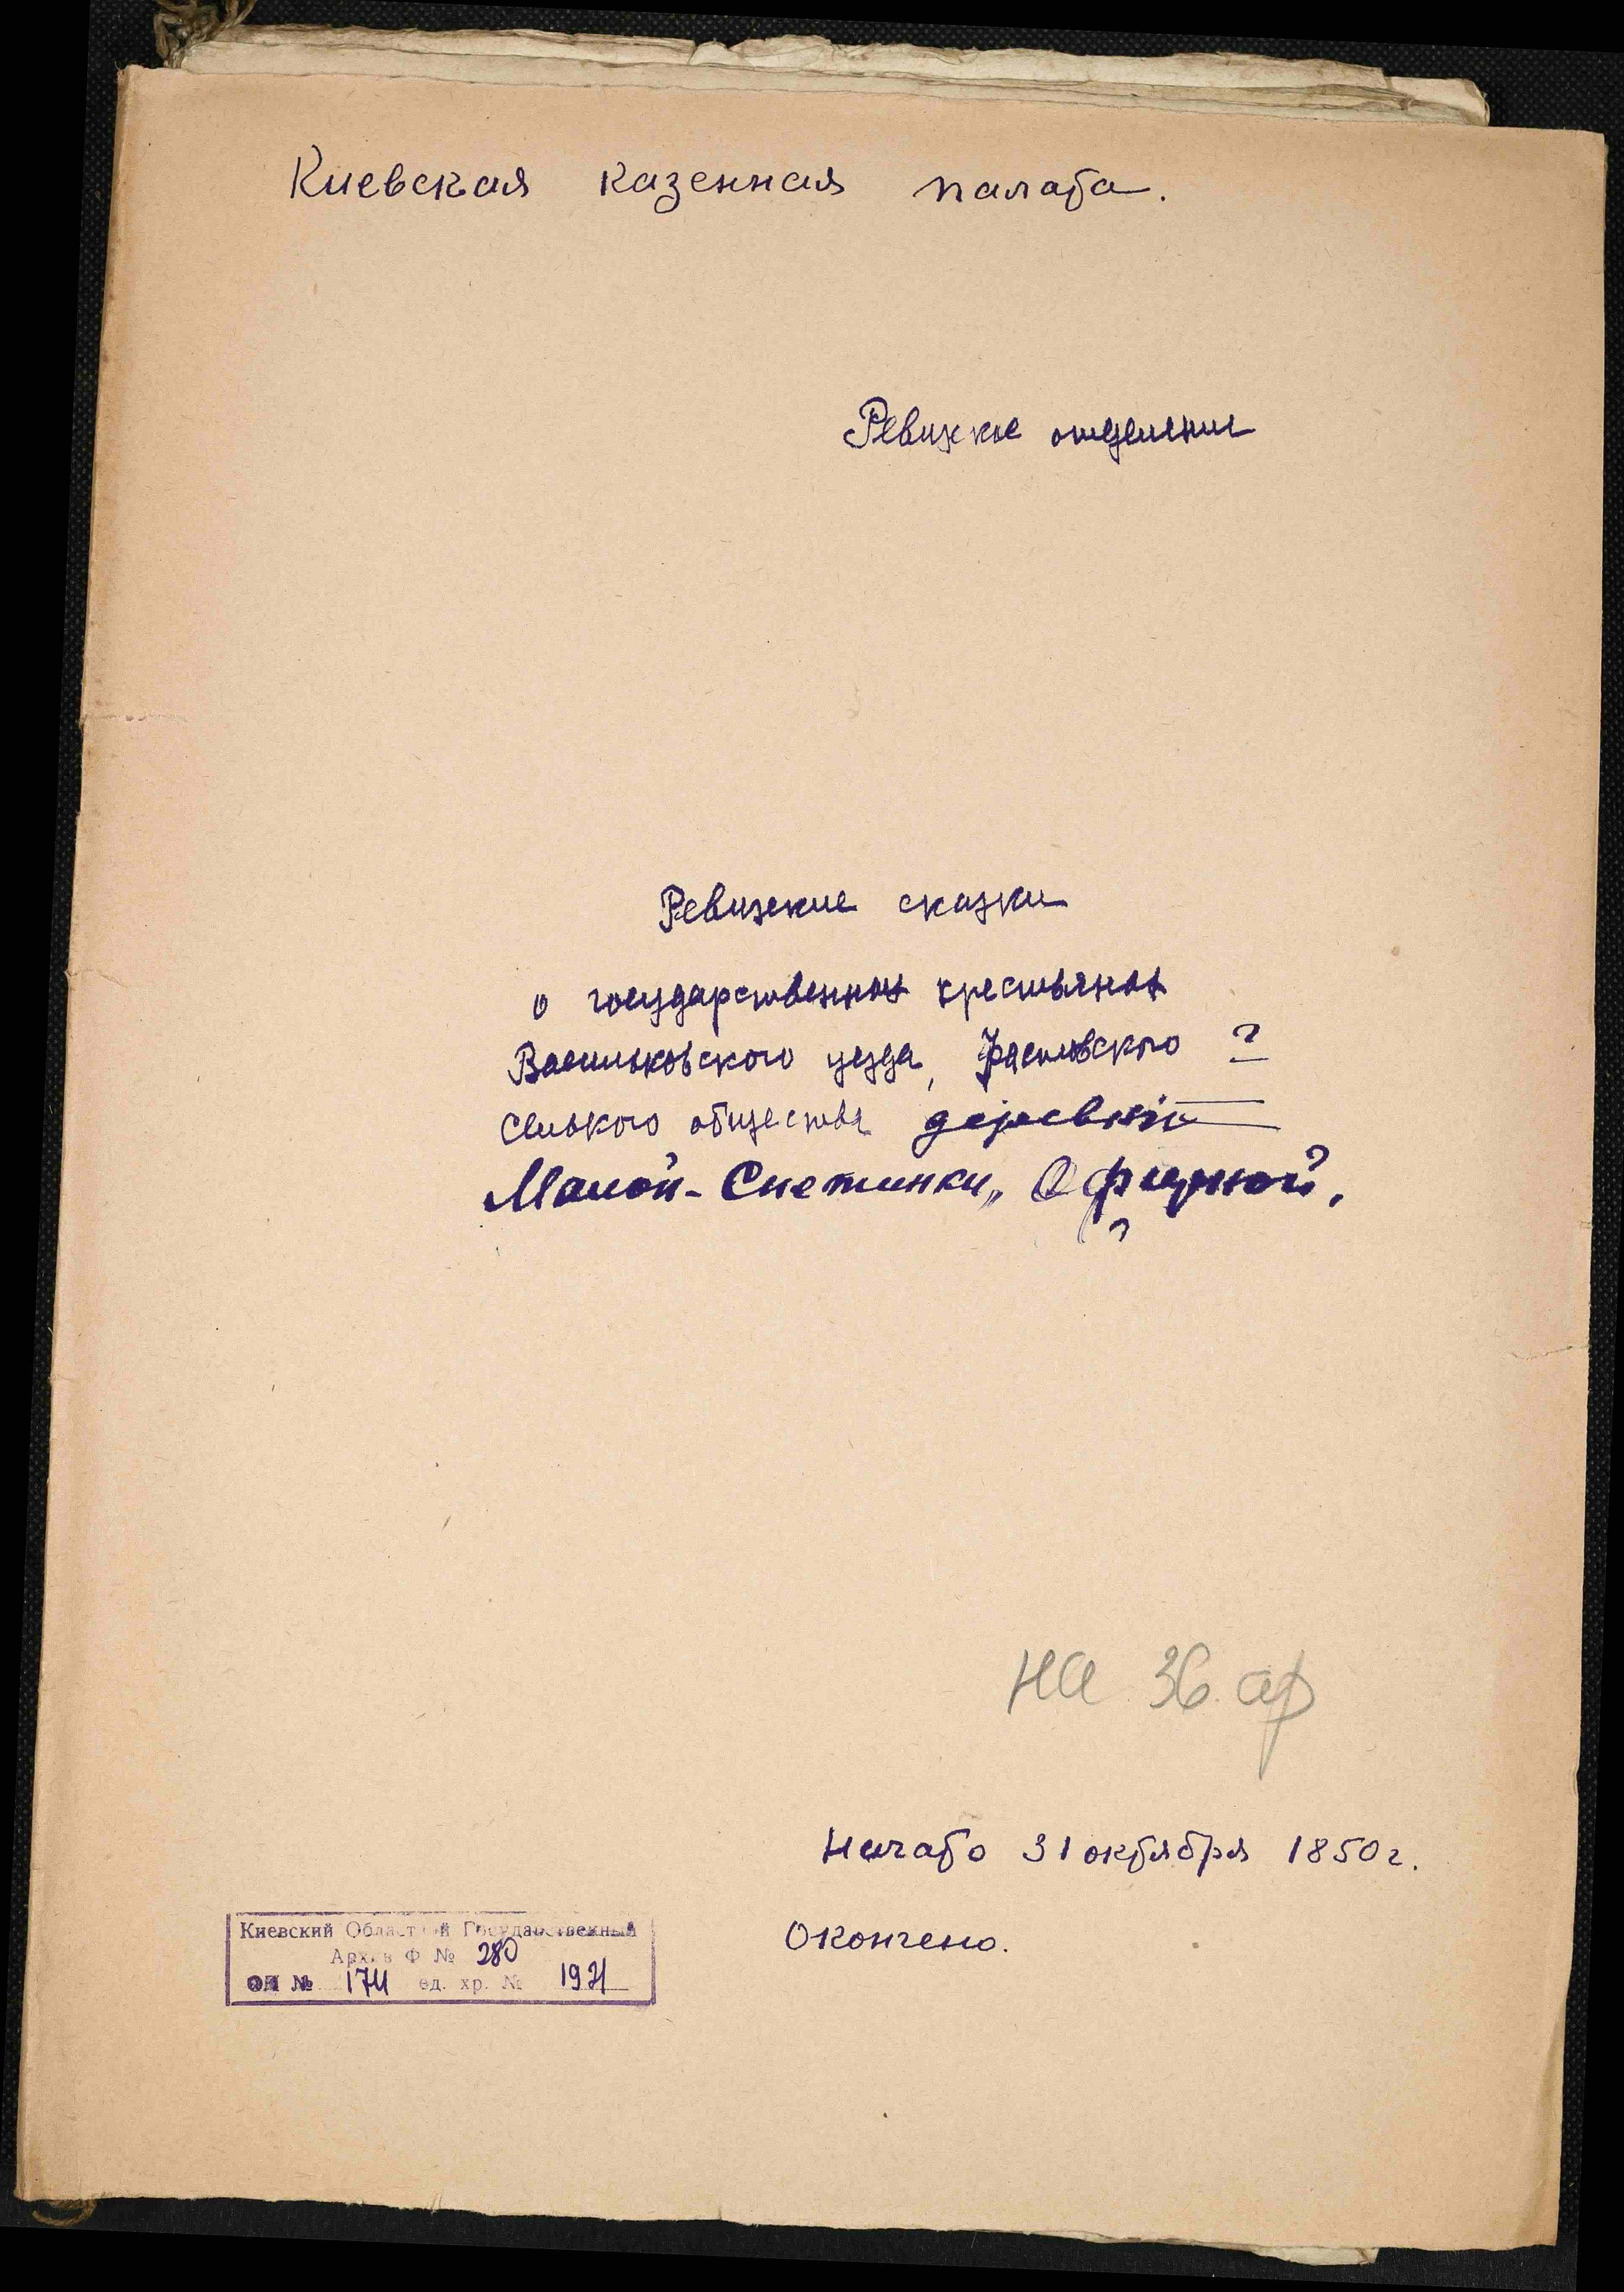 Киевская казенная палата.
Ревизкое отделение
Ревизские сказки
о государственных крестьянах
Васильковского уезда, Фастовского ?
сельского общества деревни
Малой-Снетинки,, Офирной,
?
на 36. ар
Начато 31 октября 1850 г.
Окончено.
Киевский Областной Государственный
Архив Ф № 280
ОП № 174 ед. хр. № 1931